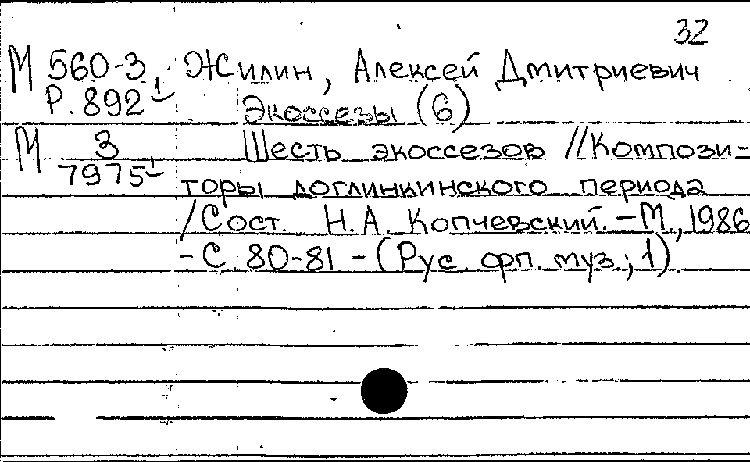 32
М 560-3 Жилин, Алексей Дмитриевич
Р. 892 Экоссезы (6)
М 3 Шесть экоссезов //Компози-
7975 торы доглинкинского периода
/Сост. Н.А. Копчевский. – М., 1986
- С. 80-81 - (Рус. фп. муз.; 1)